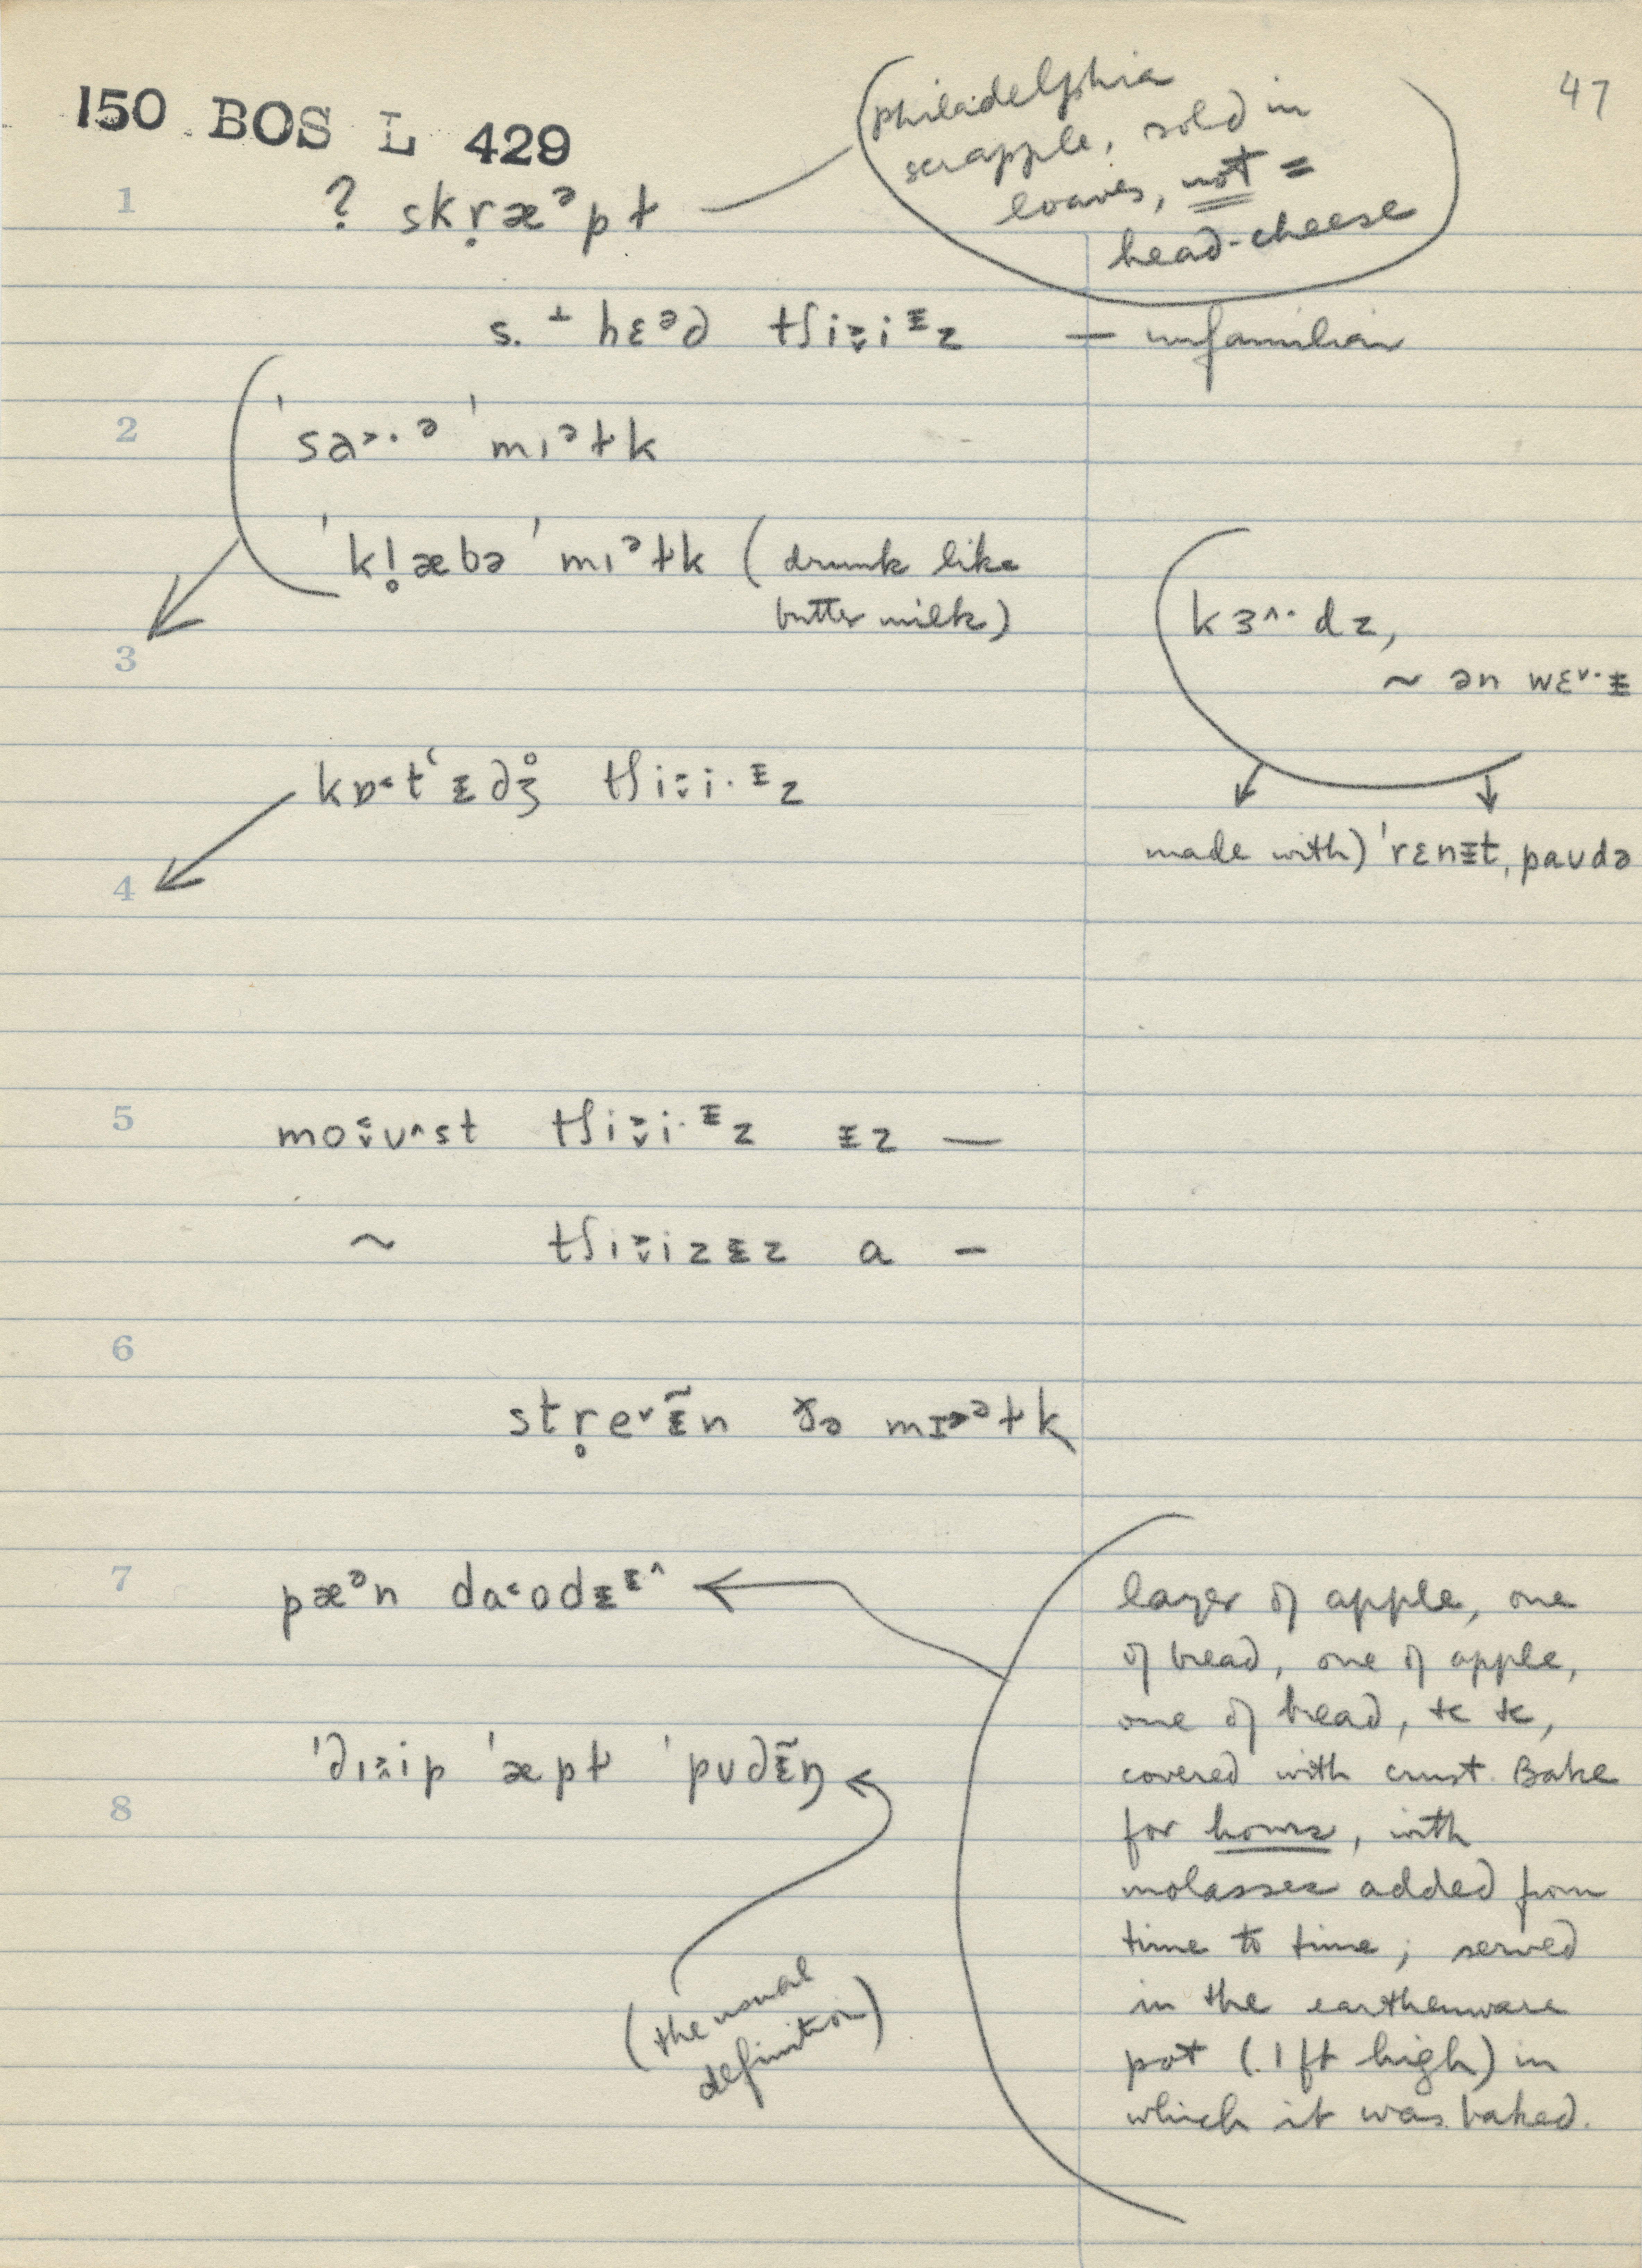 47
150 BOS L 429
(Philadelphia
scrapple, sold in
loaves, not =
head-cheese
1
? skr̥æᵊpɫ
s. ⊥ hɛᵊd tʃi
— unfamiliar
2
ˈsa˃·ᵊ ˈmıᵊɫk
ˈkl̥æbə ˈmıᵊɫk (drunk like
butter milk)
3
kɜ^·dz,
~ ən wɛ˅·ɨ
kɒ˂tʻɨdʒ̊ tʃi
made with) ˈrɛnɨt, paʊdə
4
5
tʃi ɨz —
~ tʃi a –
6
str̥e˅ɨ̃n ðə mɪᵊɫk
7
pæᵊn da˂odɨ
layer of apple, one
of bread, one of apple,
one of bread, &c &c,
covered with crust. Bake
for hours, with
molasses added from
time to time; served
in the earthenware
pot (.1 ft high) in
which it was baked.
ˈdip ˈæpɫ ˈpʊdɨ̃ŋ
8
(the usual
definition)